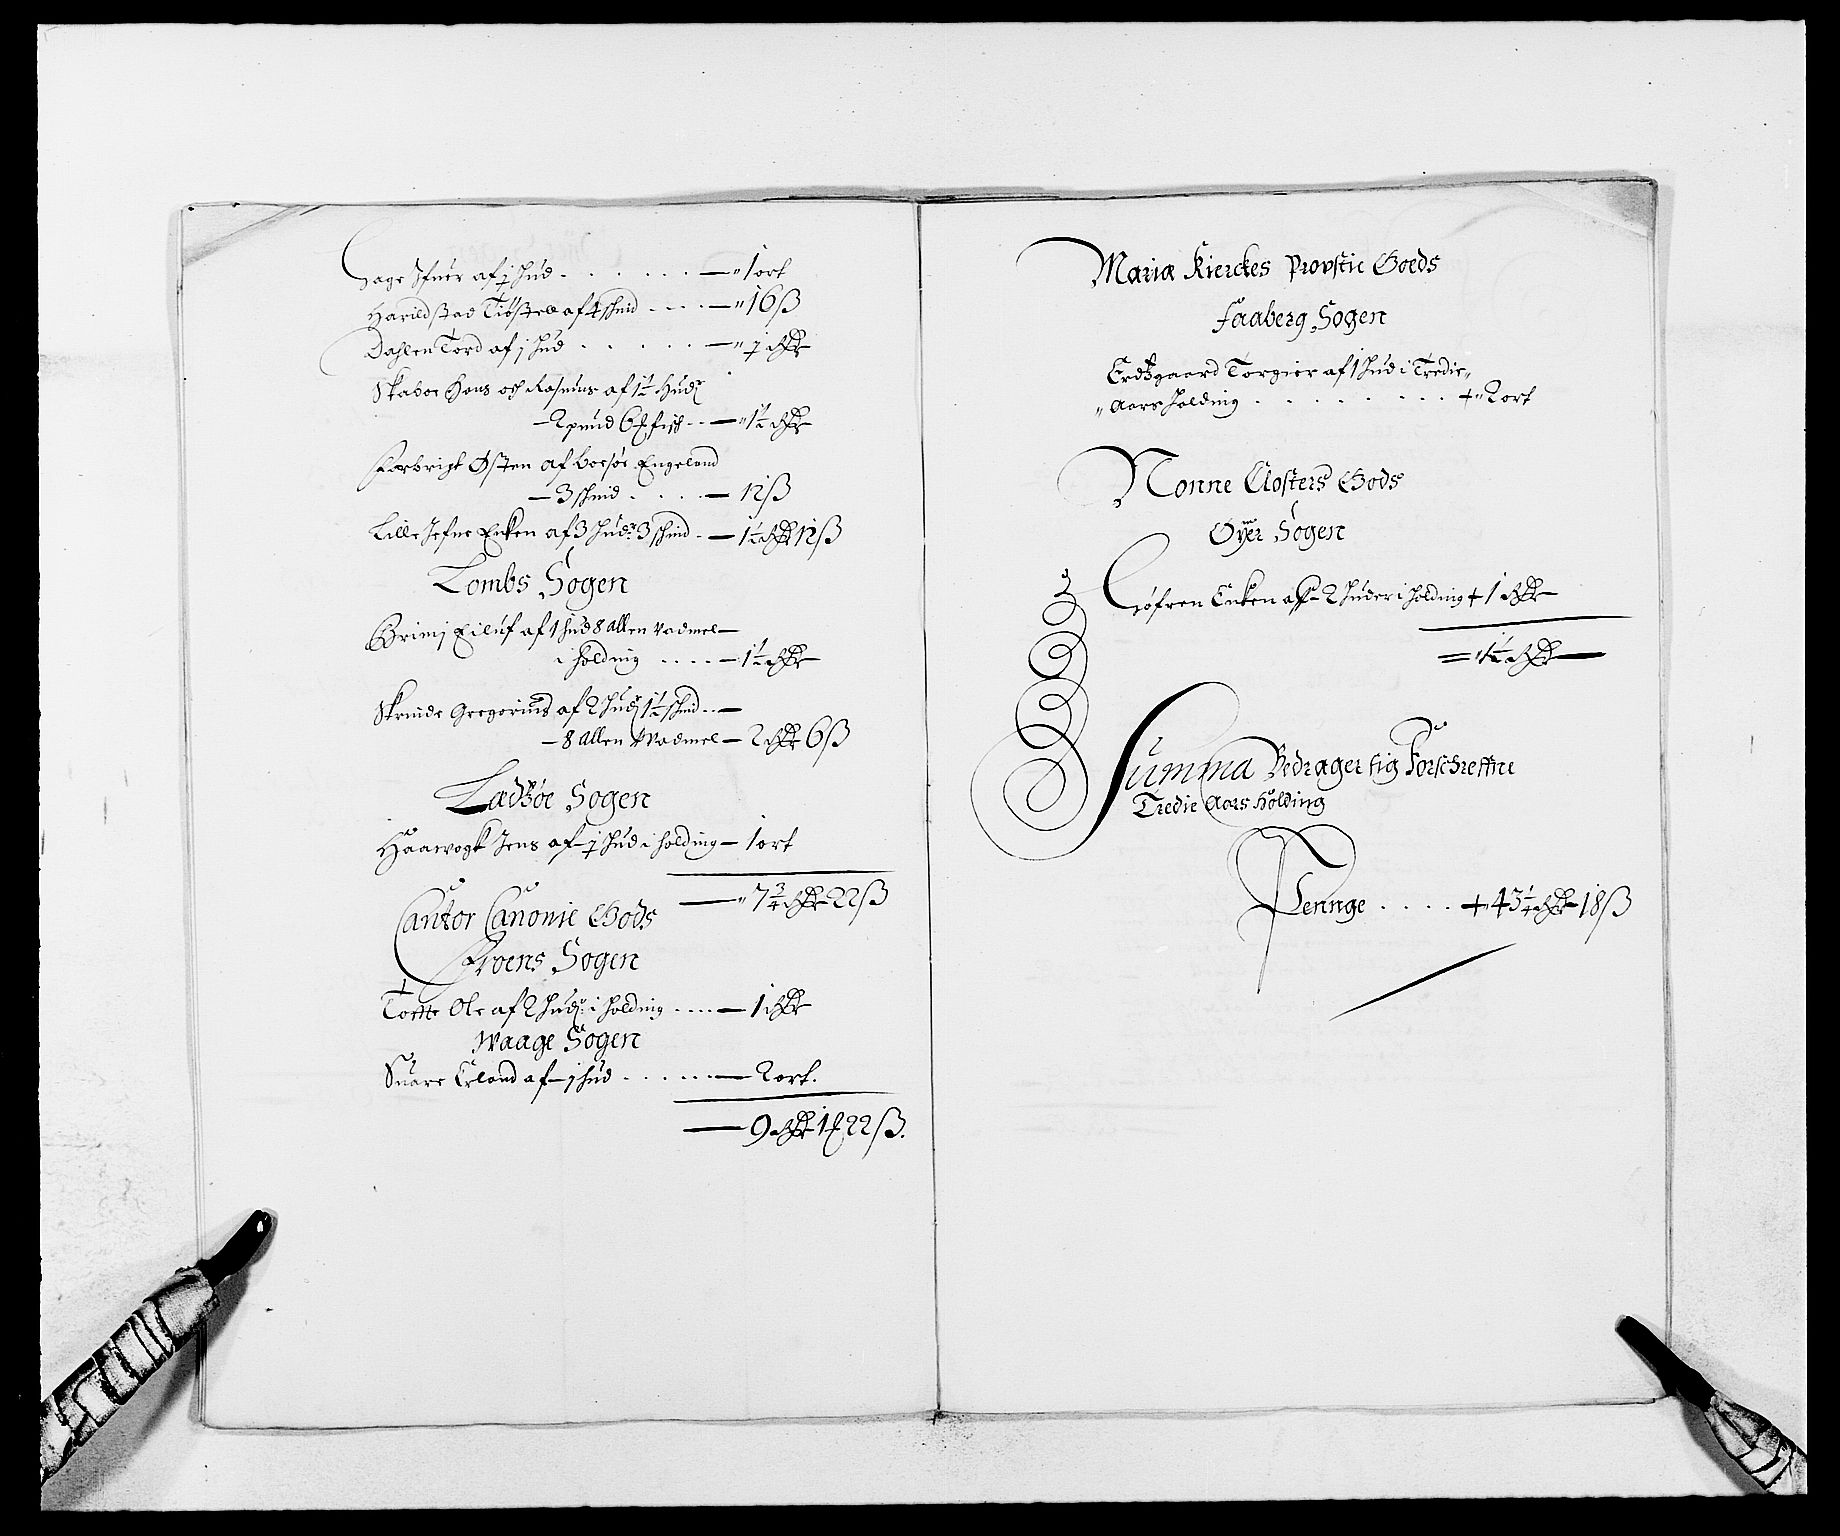 Hage Ifuer af ½ hud . . . . . . — „ 1 ort
Harildstad Tiøstell af 4 skind . . . — „ 16 ß
Dahlen Tord af j hud . . . . . — „ ½ Rdr
Skaboe Hans och Rasmus af 1½ Hudr
— 2 pund 6 fisch . . — „ 1½ Rdr
Forbrigt Østen af boesøe Engeland
— 3 skind . . . . — 12 ß
Lille Jefne Enken af 3 hudr 3 skind . — 1½ Rdr 12 ß
Lombs Sogen
Grimj Eiluf af 1 hud 8 allen vadmel —
i holding . . . . — 1½ Rdr
Skrinde Gregorius af 2 hudr 1½ skind . . —
— 8 allen Wadmel — 2 Rdr 6 ß
Ladßøe Sogen
Haawogk Jens af ½ hud i holding — 1 ort
— „ 7¾ Rdr 22 ß
Cantor Canonie Gods
Froens Sogen
Tofte Ole af 2 hudr i holding . . . . — 1 Rdr
Waage Sogen
Suare Erland af j hud . . . . . — 2 ort.
— 9 Rdr 1 22 ß.
Mariæ Kierckes Provstie Goeds
Faaberg Sogen
Erdtzgaard Torgier af 1 hud i Tredie„
„ Aars holding . . . . . . . . + „ 2 ort
Nonne Closters Gods
Oÿer Sogen
Enken af 2 huder i holding + 1 Rdr
= „ 1½ Rdr —
Summa Bedrager sig Forschreffne
Tredie Aars Holding
Pennge . . . . + 43¼ Rdr 18 ß